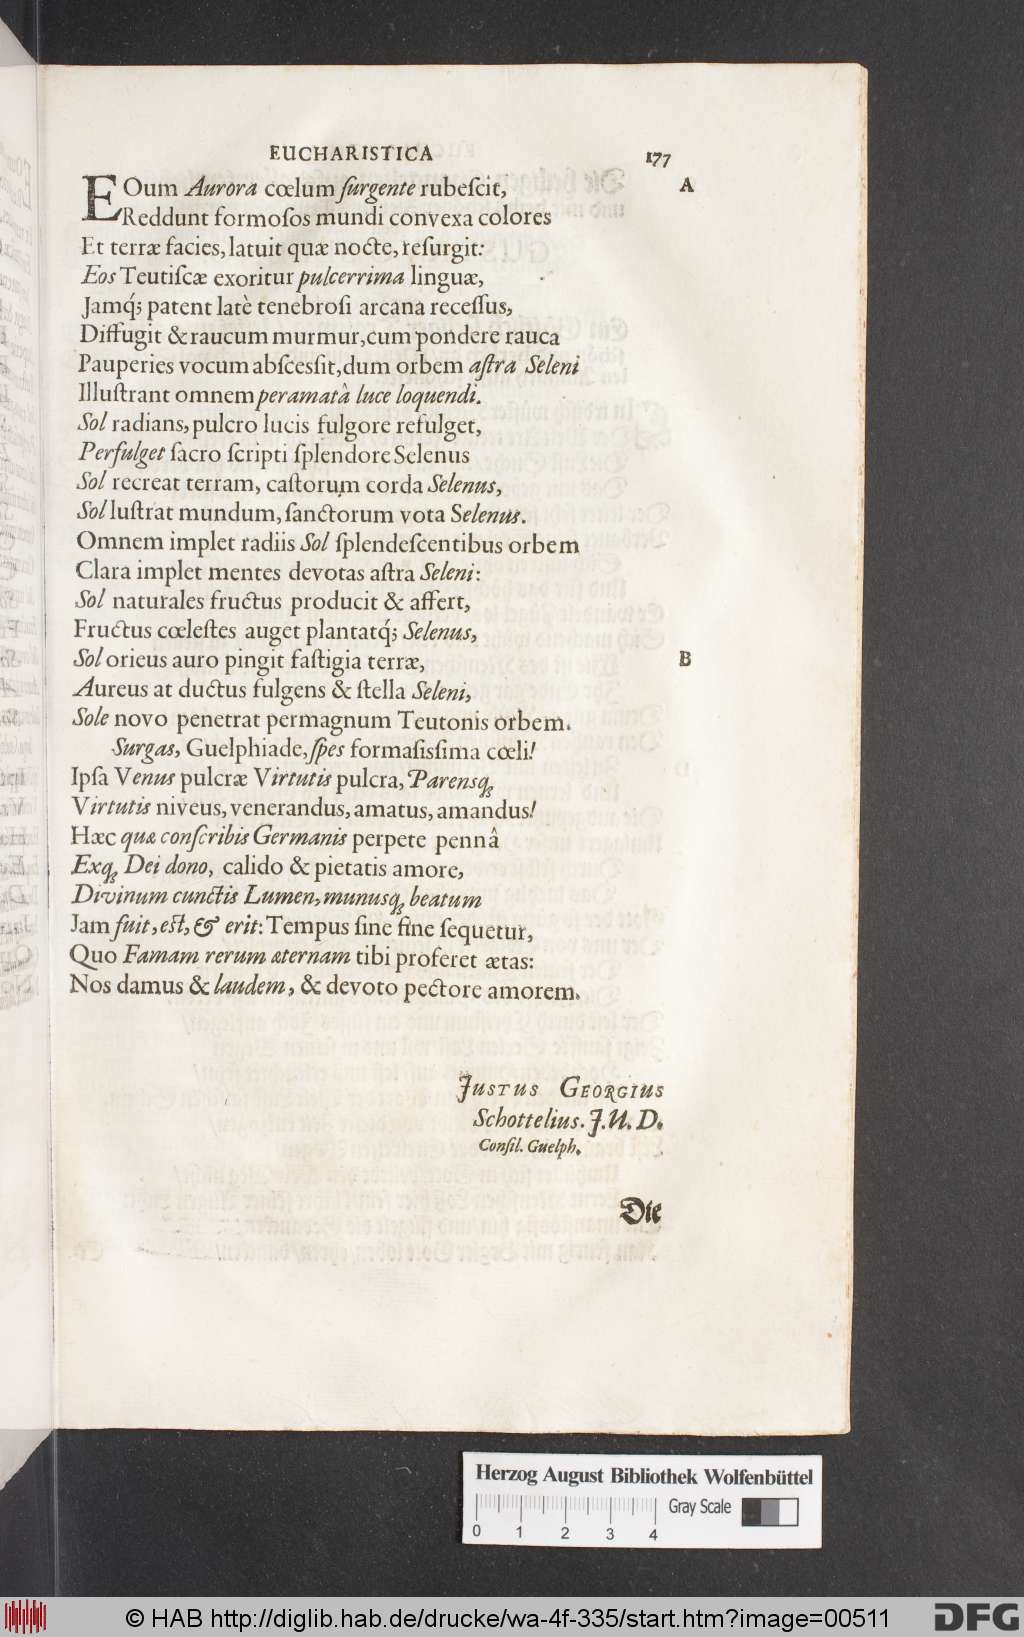 EUCHARISTICA 177
EOum Aurora cœlum ſurgente rubeſcit, A
Reddunt formoſos mundi convexa colores
Et terræ facies, latuit quæ nocte, reſurgit:
Eos Teutiſcæ exoritur pulcerrima linguæ,
Jamq́; patent latè tenebroſi arcana receſſus,
Diffugit & raucum murmur, cum pondere rauca
Pauperies vocum abſceſſit, dum orbem aſtra Seleni
Illuſtrant omnem peramatâ luce loquendi.
Sol radians, pulcro lucis fulgore refulget,
Perfulget ſacro ſcripti ſplendore Selenus
Sol recreat terram, caſtorum corda Selenus,
Sol luſtrat mundum, ſanctorum vota Selenus.
Omnem implet radiis Sol ſplendeſcentibus orbem
Clara implet mentes devotas aſtra Seleni:
Sol naturales fructus producit & affert,
Fructus cœleſtes auget plantatq́; Selenus,
Sol orieus auro pingit faſtigia terræ, B
Aureus at ductus fulgens & ſtella Seleni,
Sole novo penetrat permagnum Teutonis orbem.
Surgas, Guelphiade, ſpes formaſisſima cœli!
Ipſa Venus pulcræ Virtutis pulcra, Parensq;
Virtutis niveus, venerandus, amatus, amandus!
Hæc quæ conſcribis Germanis perpete pennâ
Exq; Dei dono, calido & pietatis amore,
Divinum cunctis Lumen, munusq; beatum
Jam fuit, eſt, & erit: Tempus ſine fine ſequetur,
Quo Famam rerum æternam tibi proferet ætas:
Nos damus & laudem, & devoto pectore amorem.
JUSTUS GEORGIUS
Schottelius. J.U.D.
Conſil. Guelph.
Die
Herzog August Bibliothek Wolfenbüttel
Gray Scale
0 1 2 3 4
© HAB http://diglib.hab.de/drucke/wa-4f-335/start.htm?image=00511 DFG